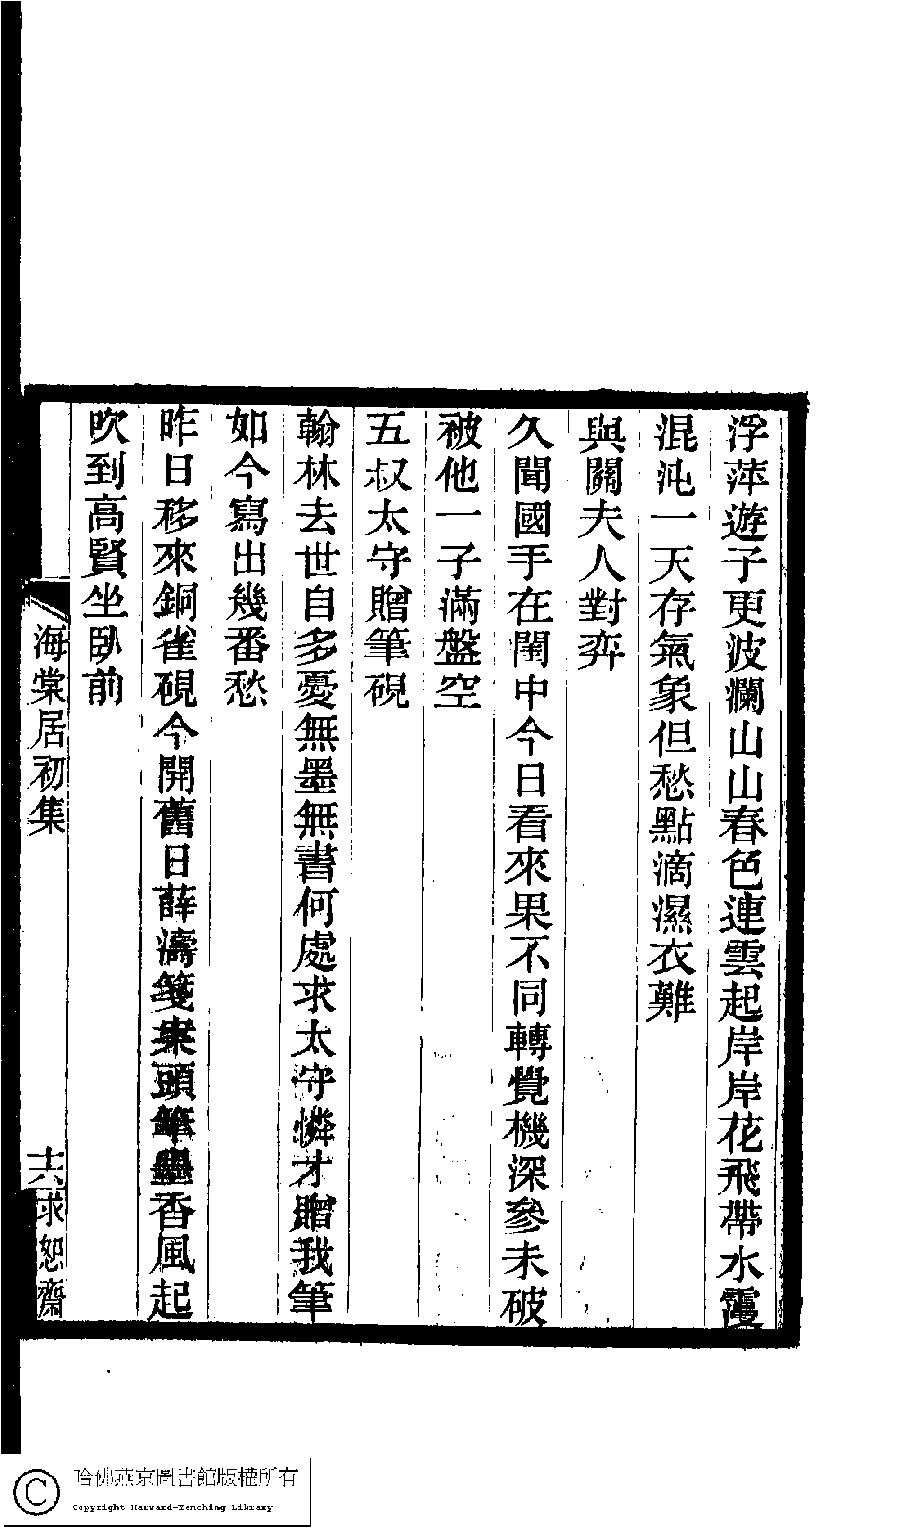 浮萍遊子更波瀾山山春色連雲起岸岸花飛帶水靉
混沌一天存氣象但愁點滴濕衣難
與關夫人對弈
久聞國手在閨中今日看來果不同轉覺機深參未破
被他一子滿盤空
五叔太守贈筆硯
翰林去世自多憂無墨無書何處求太守憐才贈我筆
如今寫出幾番愁
昨日移來銅雀硯今開舊日薛濤箋案頭筆墨香風起
吹到高賢坐臥前
海棠居初集
十六
求恕齋
哈佛燕京圖書館版權所有
Copyright Harvard-Yenching Library